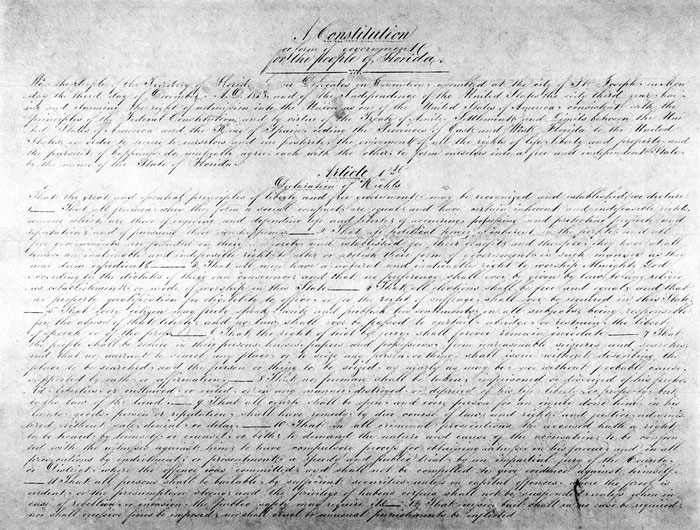 A Constitution
or form of government
for the people of Florida.
We the People of the Territory of Florida by our Delegates in Convention assembled at the city of St. Joseph on Mon
day the third day of December A.D. 1838, and of the independence of the United States the sixty third year, hav
ing and claiming the right of admission into the Union as one of the United States of America consistent with the
principles of the Federal Constitution and by virtue of the Treaty of Amity, Settlement and Limits between the Uni
ted States of America and the King of Spain, ceding the Provinces of East and West Florida to the United
States; in order to secure to ourselves and our posterity the enjoyment of all the rights of life, liberty and property and
the pursuit of happiness, do mutually agree, each with the other, to form ourselves into a free and independent State
by the name of the State of Florida.
Article 1st
Declaration of Rights
That the great and essential principles of liberty and free government may be recognized and established, we declare;
That all freemen when they form a social compact, are equal; and have certain inherent and indefeasible rights
among which are those of enjoying and defending life and liberty; of acquiring, possessing and protecting property and
reputation; and of pursuing their own happiness. 2 That all political power is inherent in the people and all
free governments are founded on their authority and established for their benefit; and therefore they have at all
times an inalienable and indefeasible right to alter or abolish their form of government in such manner as they
may deem expedient. 3 That all men have a natural and inalienable right to worship Almighty God
according to the dictates of their own conscience; and that no preference shall ever be given by law to any religi
ous establishment or mode of worship in this State. 4 That all elections shall be free and equal; and that
no property qualification for eligibility to office, or for the right of suffrage, shall ever be required in this State.
5 That every citizen may freely speak, write and publish his sentiments on all subjects being responsible
for the abuse of that liberty; and no law shall ever be passed to curtail, abridge or restrain the liberty
of speech or of the press. 6 That the right of trial by jury shall forever remain inviolate. 7 That
the people shall be secure in their persons, houses, papers and possessions from unreasonable seizures and searches;
and that no warrant to search any place or to seize any person or thing shall issue without describing the
place to be searched and the person or thing to be seized, as nearly as may be, nor without probable cause,
supported by oath or affirmation. 8 That no freeman shall be taken, imprisoned or disseized of his freehold,
liberties or privileges, or outlawed or exiled, or in any manner destroyed or deprived of his life, liberty or property, but
by the law of the land. 9 That all courts shall be open, and every person for an injury done him in his
lands, goods, person or reputation shall have remedy by due course of law; and right and justice adminis
tered without sale, denial or delay. 10 That in all criminal prosecutions the accused hath a right
to be heard by himself or counsel, or both; to demand the nature and cause of the accusation; to be confron
ted with the witnesses against him; to have compulsory process for obtaining witnesses in his favour; and in all
prosecutions by indictment or presentment a speedy and public trial by an impartial jury of the County
or District, where the offence was committed; and shall not be compelled to give evidence against himself.
11 That all persons shall be bailable by sufficient securities unless in capital offences where the proof is
evident or the presumption strong; and the privilege of habeas corpus shall not be suspended unless when in
case of rebellion or invasion, the public safety may require it. 12 That excessive bail shall in no case be required;
nor shall excessive fines be imposed; nor shall cruel or unusual punishments be inflicted.